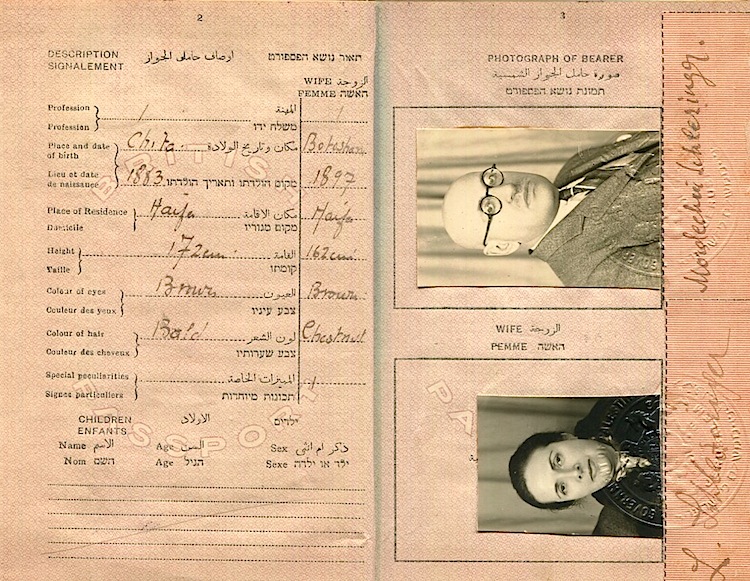 2
DESCRIPTION اوصاف حامل الجواز תאור נושא הפספורט
SIGNALEMENT
WIFE الزوجة
FEMME האשה
Profession المهنة
Profession משלח ידו
Place and date of birth Chita مكان وتاريخ الولادة Botoshan
Lieu et date de naissance 1883 מקום הולדתו ותאריך הולדתו 1897
Place of Residence Haifa مكان الاقامة Haifa
Domicile מקום מגוריו
Height 172 cm القامة 162 cm
Taille קומתו
Colour of eyes Brown العيون Brown
Couleur des yeux צבע עיניו
Colour of hair Bald لون الشعر Chestnut
Couleur des cheveux צבע שערותיו
Special peculiarities المميزات الخاصة
Signes particuliers תכונות מיוחדות
CHILDREN الاولاد ילדים
ENFANTS
Name الاسم Age السن Sex ذكر ام انثى
Nom השם Age הגיל Sexe ילד או ילדה
BRITISH
PASSPORT
3
PHOTOGRAPH OF BEARER
صورة حامل الجواز الشمسية
תמונת נושא הפספורט
WIFE الزوجة
FEMME האשה
PA
Mordechai Schlesinger.